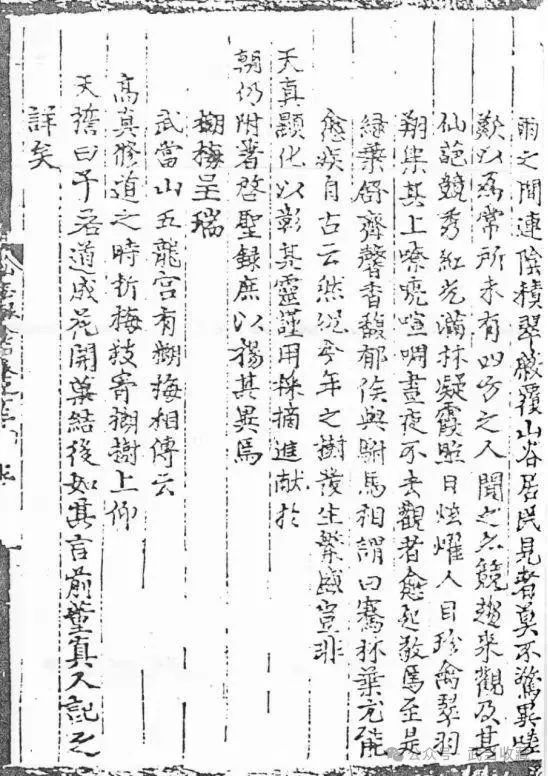 雨之間連陰積翠嚴覆山谷居民見者莫不驚異嗟
歎以為常所未有四方之人聞之亦競趨來觀及其
仙葩競秀紅光滿林凝霞照日炫耀人目珍禽翠羽
翔集其上嘹喨喧啁晝夜不去觀者愈起敬焉至是
綠葉舒齊馨香馥郁俟與駙馬相謂曰騫林葉尤能
愈疾自古云然況今年之樹發生繁盛豈非
天真顯化以彰其靈謹用採摘進獻於
朝仍附著啓聖錄庶以揚其異焉
榔梅呈瑞
武當山五龍宮有榔梅相傳云
高真修道之時折梅枝寄榔樹上仰
天誓曰予若道成花開菓結後如其言前董真人記之
詳矣
公众号 武当收藏